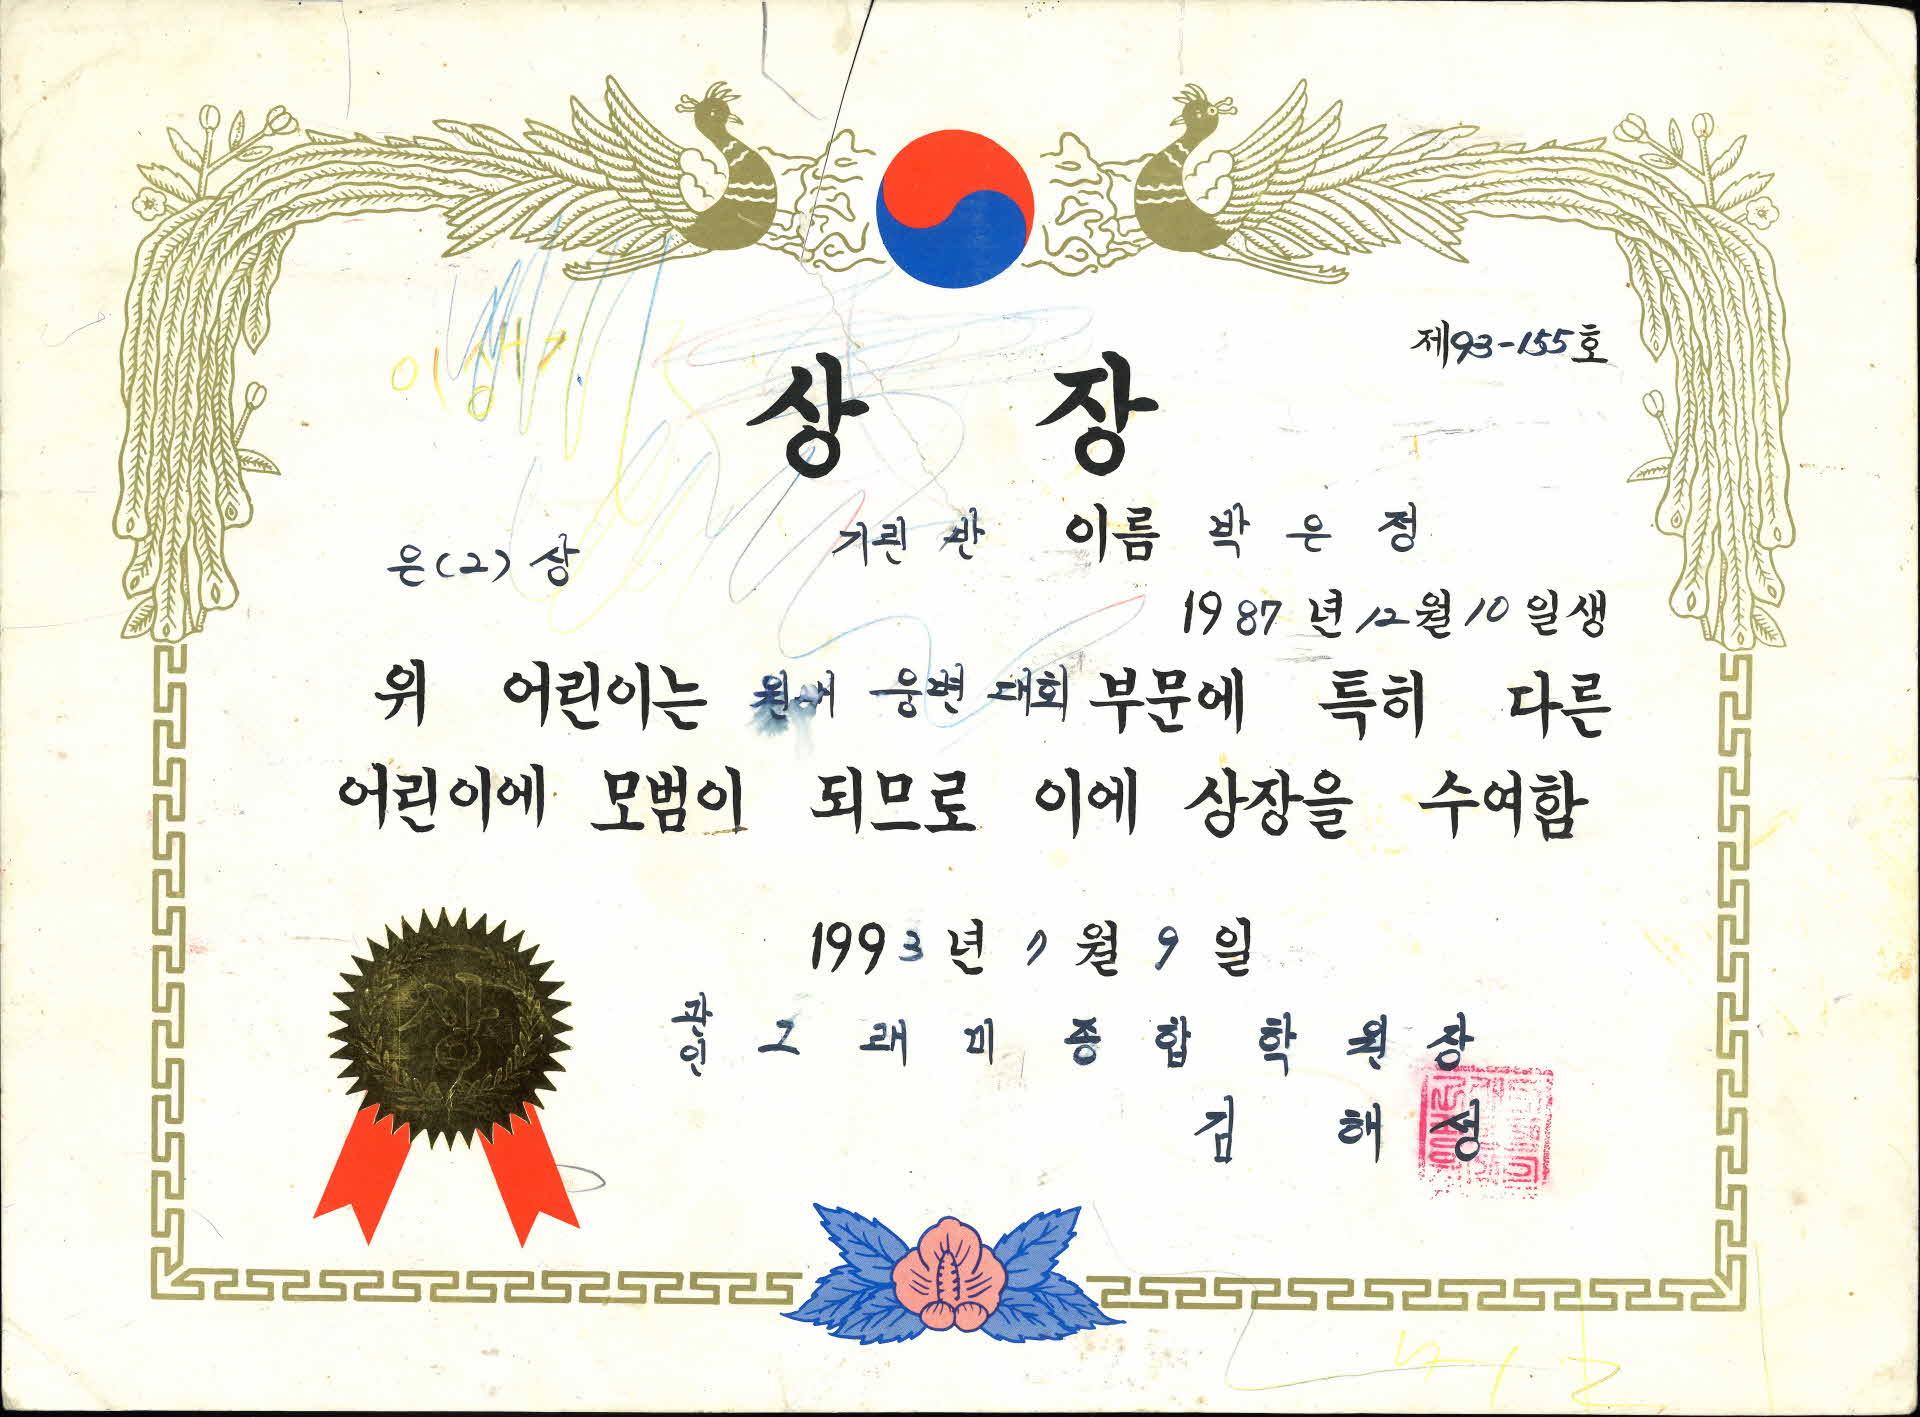 제93-155호
상 장
은(2)상
기린 반 이름 박 은 정
1987년 12월 10일생
위 어린이는 원내 웅변 대회 부문에 특히 다른
어린이에 모범이 되므로 이에 상장을 수여함
1993년 7월 9일
관인 그 래 미 종 합 학 원 장
김 해 성
상